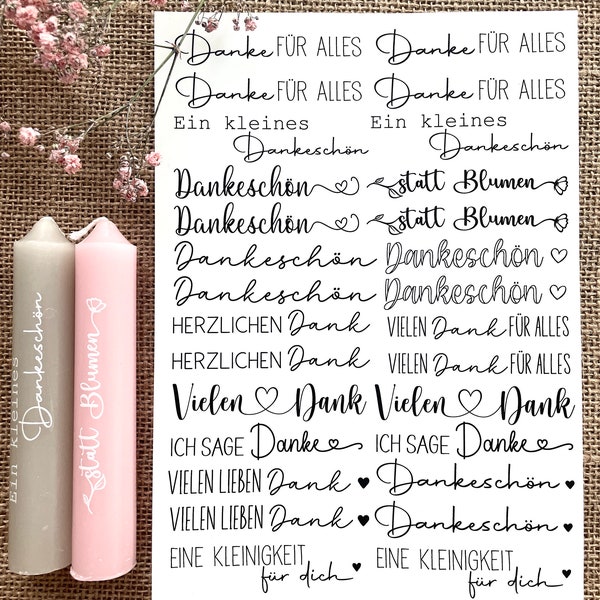 Danke FÜR ALLES Danke FÜR ALLES
Danke FÜR ALLES Danke FÜR ALLES
Ein kleines Ein kleines
Dankeschön Dankeschön
Dankeschön statt Blumen
Dankeschön statt Blumen
Dankeschön Dankeschön
Dankeschön Dankeschön
HERZLICHEN Dank VIELEN Dank FÜR ALLES
HERZLICHEN Dank VIELEN Dank FÜR ALLES
Vielen Dank Vielen Dank
ICH SAGE Danke ICH SAGE Danke
VIELEN LIEBEN Dank Dankeschön
VIELEN LIEBEN Dank Dankeschön
EINE KLEINIGKEIT EINE KLEINIGKEIT
für dich für dich
Ein kleines
Dankeschön
statt Blumen